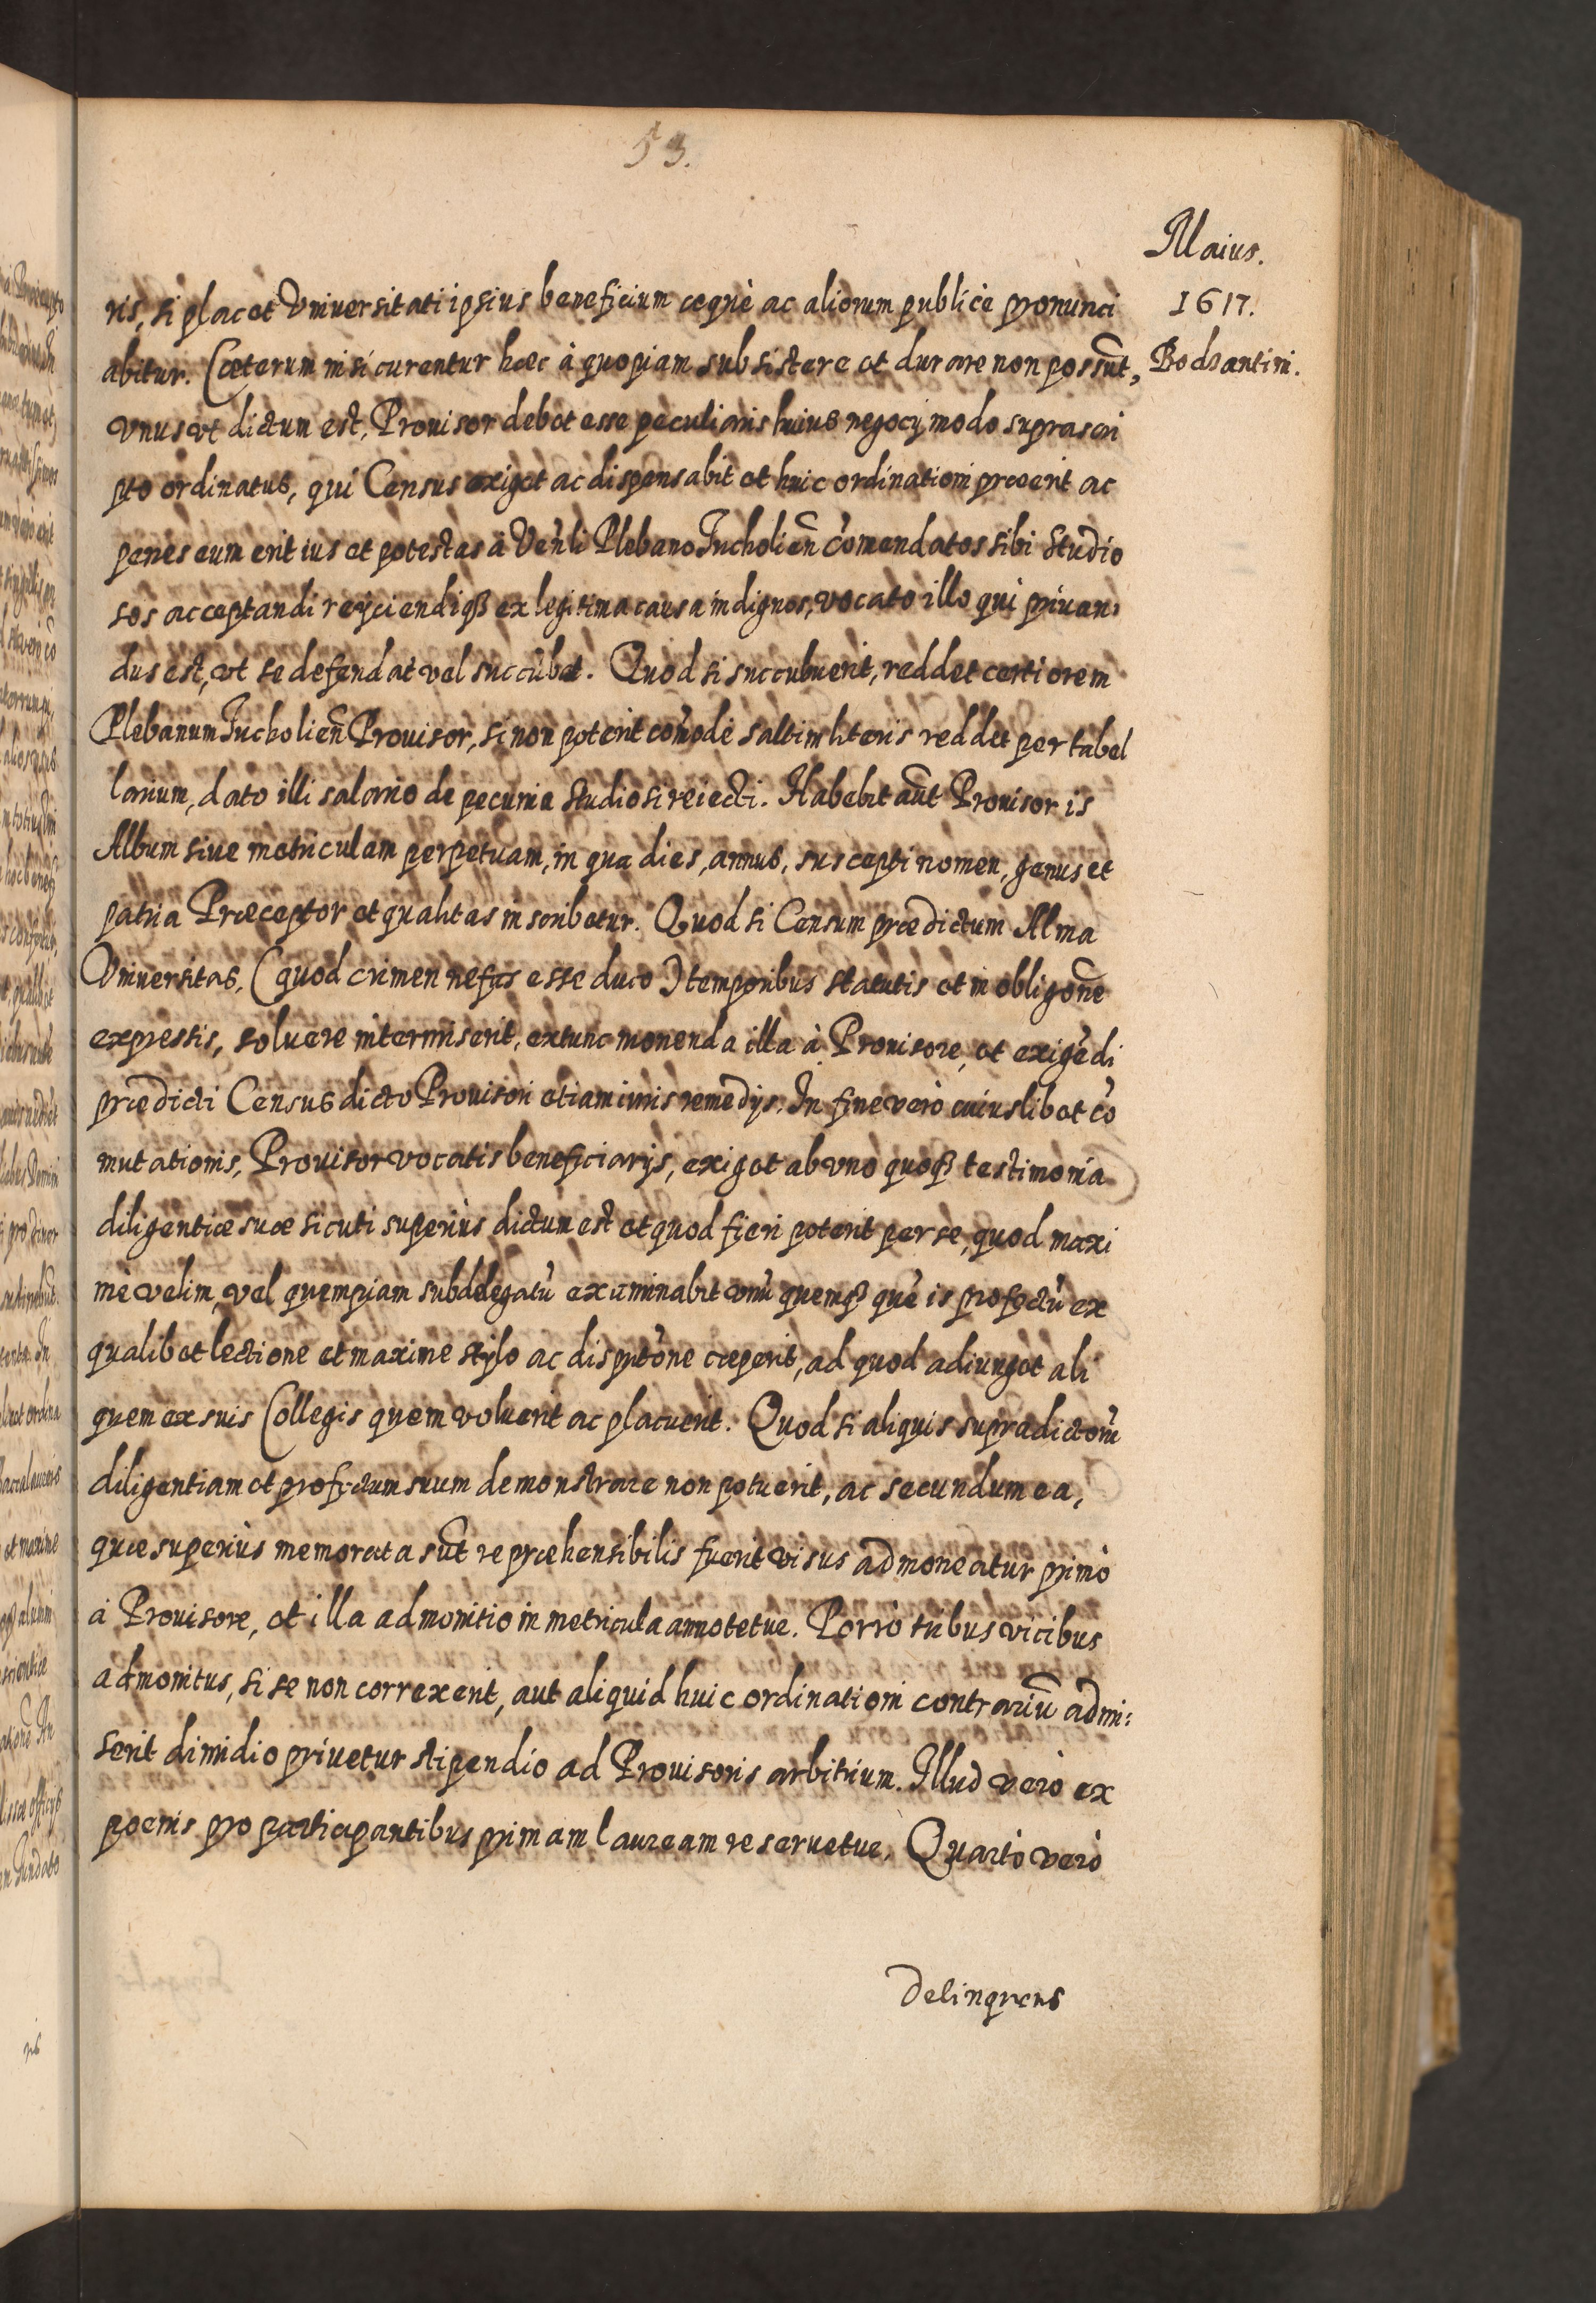 53.
Maius.
1617.
Bodzantini.
ris, si placet Vniuersitati ipsius beneficium æquè ac aliorum publicè pronunci
abitur. Cæterum nisi curentur hæc à quopiam subsistere et durare non possūt,
vnus vt dictum est, Prouisor debet esse peculiaris huius negocÿ modo suprascri
pto ordinatus, qui Census exiget ac dispensabit et huic ordinationi præerit ac
penes eum erit ius et potestas à Vēnli Plebano Tucholiēn cōmendatos sibi Studio
sos acceptandi reÿciendiqȝ ex legitima causa indignos, vocato illo qui priuan,
dus est, vt se defendat vel succūbat. Quod si succubuerit, reddet certiorem
Plebanum Tucholiēn Prouisor, si non poterit cōmodè saltim literis reddet per tabel
larium, dato illi salario de pecunia studiosi reiecti. Habebit aūt Prouisor is
Album siue metriculam perpetuam, in qua dies, annus, suscepti nomen, genus et
patria Præceptor et qualitas inscribetur. Quod si Censum prædictum Alma
Vniuersitas, (quod crimen nefas esse duco) temporibus statutis et in obligōne
expressis, soluere intermiserit, extunc monenda illa à Prouisore, et exigēdi
prædicti Census dicto Prouisori etiam iuris remedÿs. In fine verò cuiuslibet cō
mutationis, Prouisor vocatis beneficiarÿs, exiget ab vno quoqȝ testimonia
diligentiæ suæ sicuti superiùs dictum est et quod fieri poterit per se, quod maxi
mè velim, vel quempiam subdelegatū examinabit vnū quemqȝ quē is profectū ex
qualibet lectione et maxime stylo ac disputōne ceperit, ad quod adiunget ali
quem ex suis Collegis quem voluerit ac placuerit. Quod si aliquis supradictorū
diligentiam et profectum suum demonstrare non potuerit, ac secundum ea,
quæ superiùs memorata sūt repræhensibilis fuerit visus admoneatur primò
à Prouisore, et illa admonitio in metricula annotetur. Porrò tribus vicibus
admonitus, si se non correxerit, aut aliquid huic ordinationi contrariū admi:
serit dimidio priuetur stipendio ad Prouisoris arbitrium. Illud verò ex
poenis pro participantibus primam lauream reseruetur. Quartò verò
Delinquens